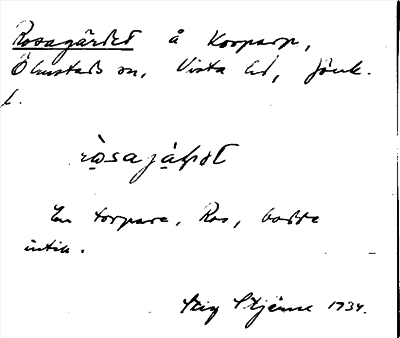 Rosagärdet å Korparp,
Ölmstads sn, Vista hd, Jönk.
l.
En torpare, Ros, bodde
intill.
Stig Stjärne 1934.